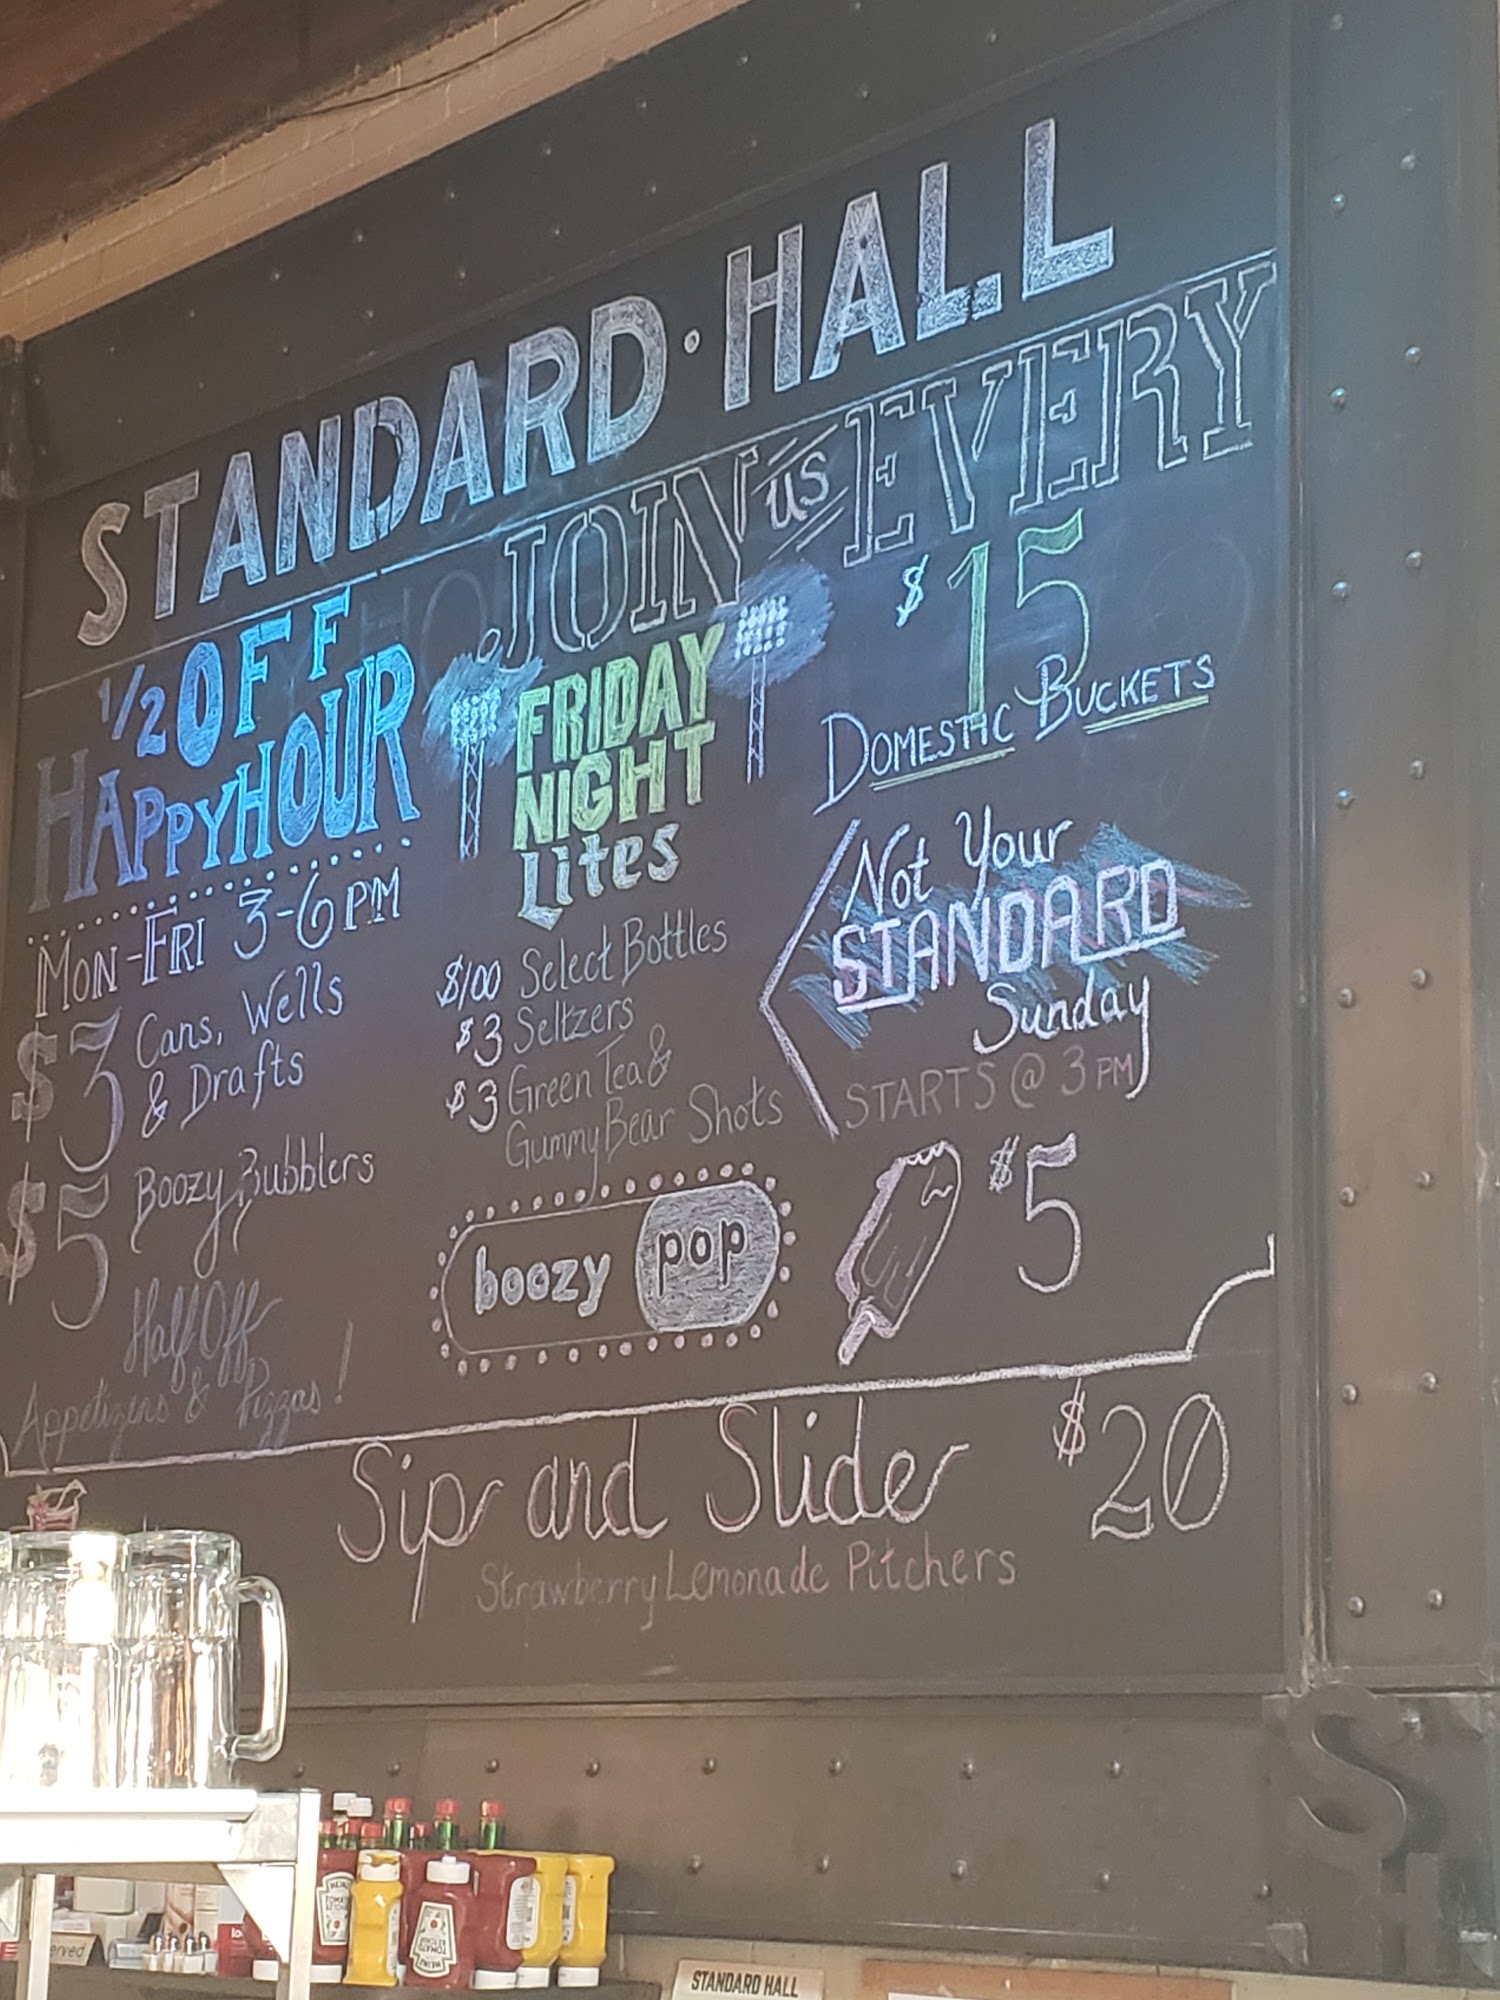 STANDARD · HALL
JOIN us EVERY
1/2 OFF
HAPPY HOUR
MON-FRI 3-6PM
$3 Cans, Wells
& Drafts
$5 Boozy Bubblers
Half Off
Appetizers & Pizzas!
FRIDAY
NIGHT
Lites
$1.00 Select Bottles
$3 Seltzers
$3 Green Tea &
Gummy Bear Shots
$15
DOMESTIC BUCKETS
Not Your
STANDARD
Sunday
STARTS @ 3PM
boozy pop
$5
Sip and Slide $20
Strawberry Lemonade Pitchers
SH
HEINZ
TOMATO
KETCHUP
HEINZ
TOMATO
KETCHUP
STANDARD HALL